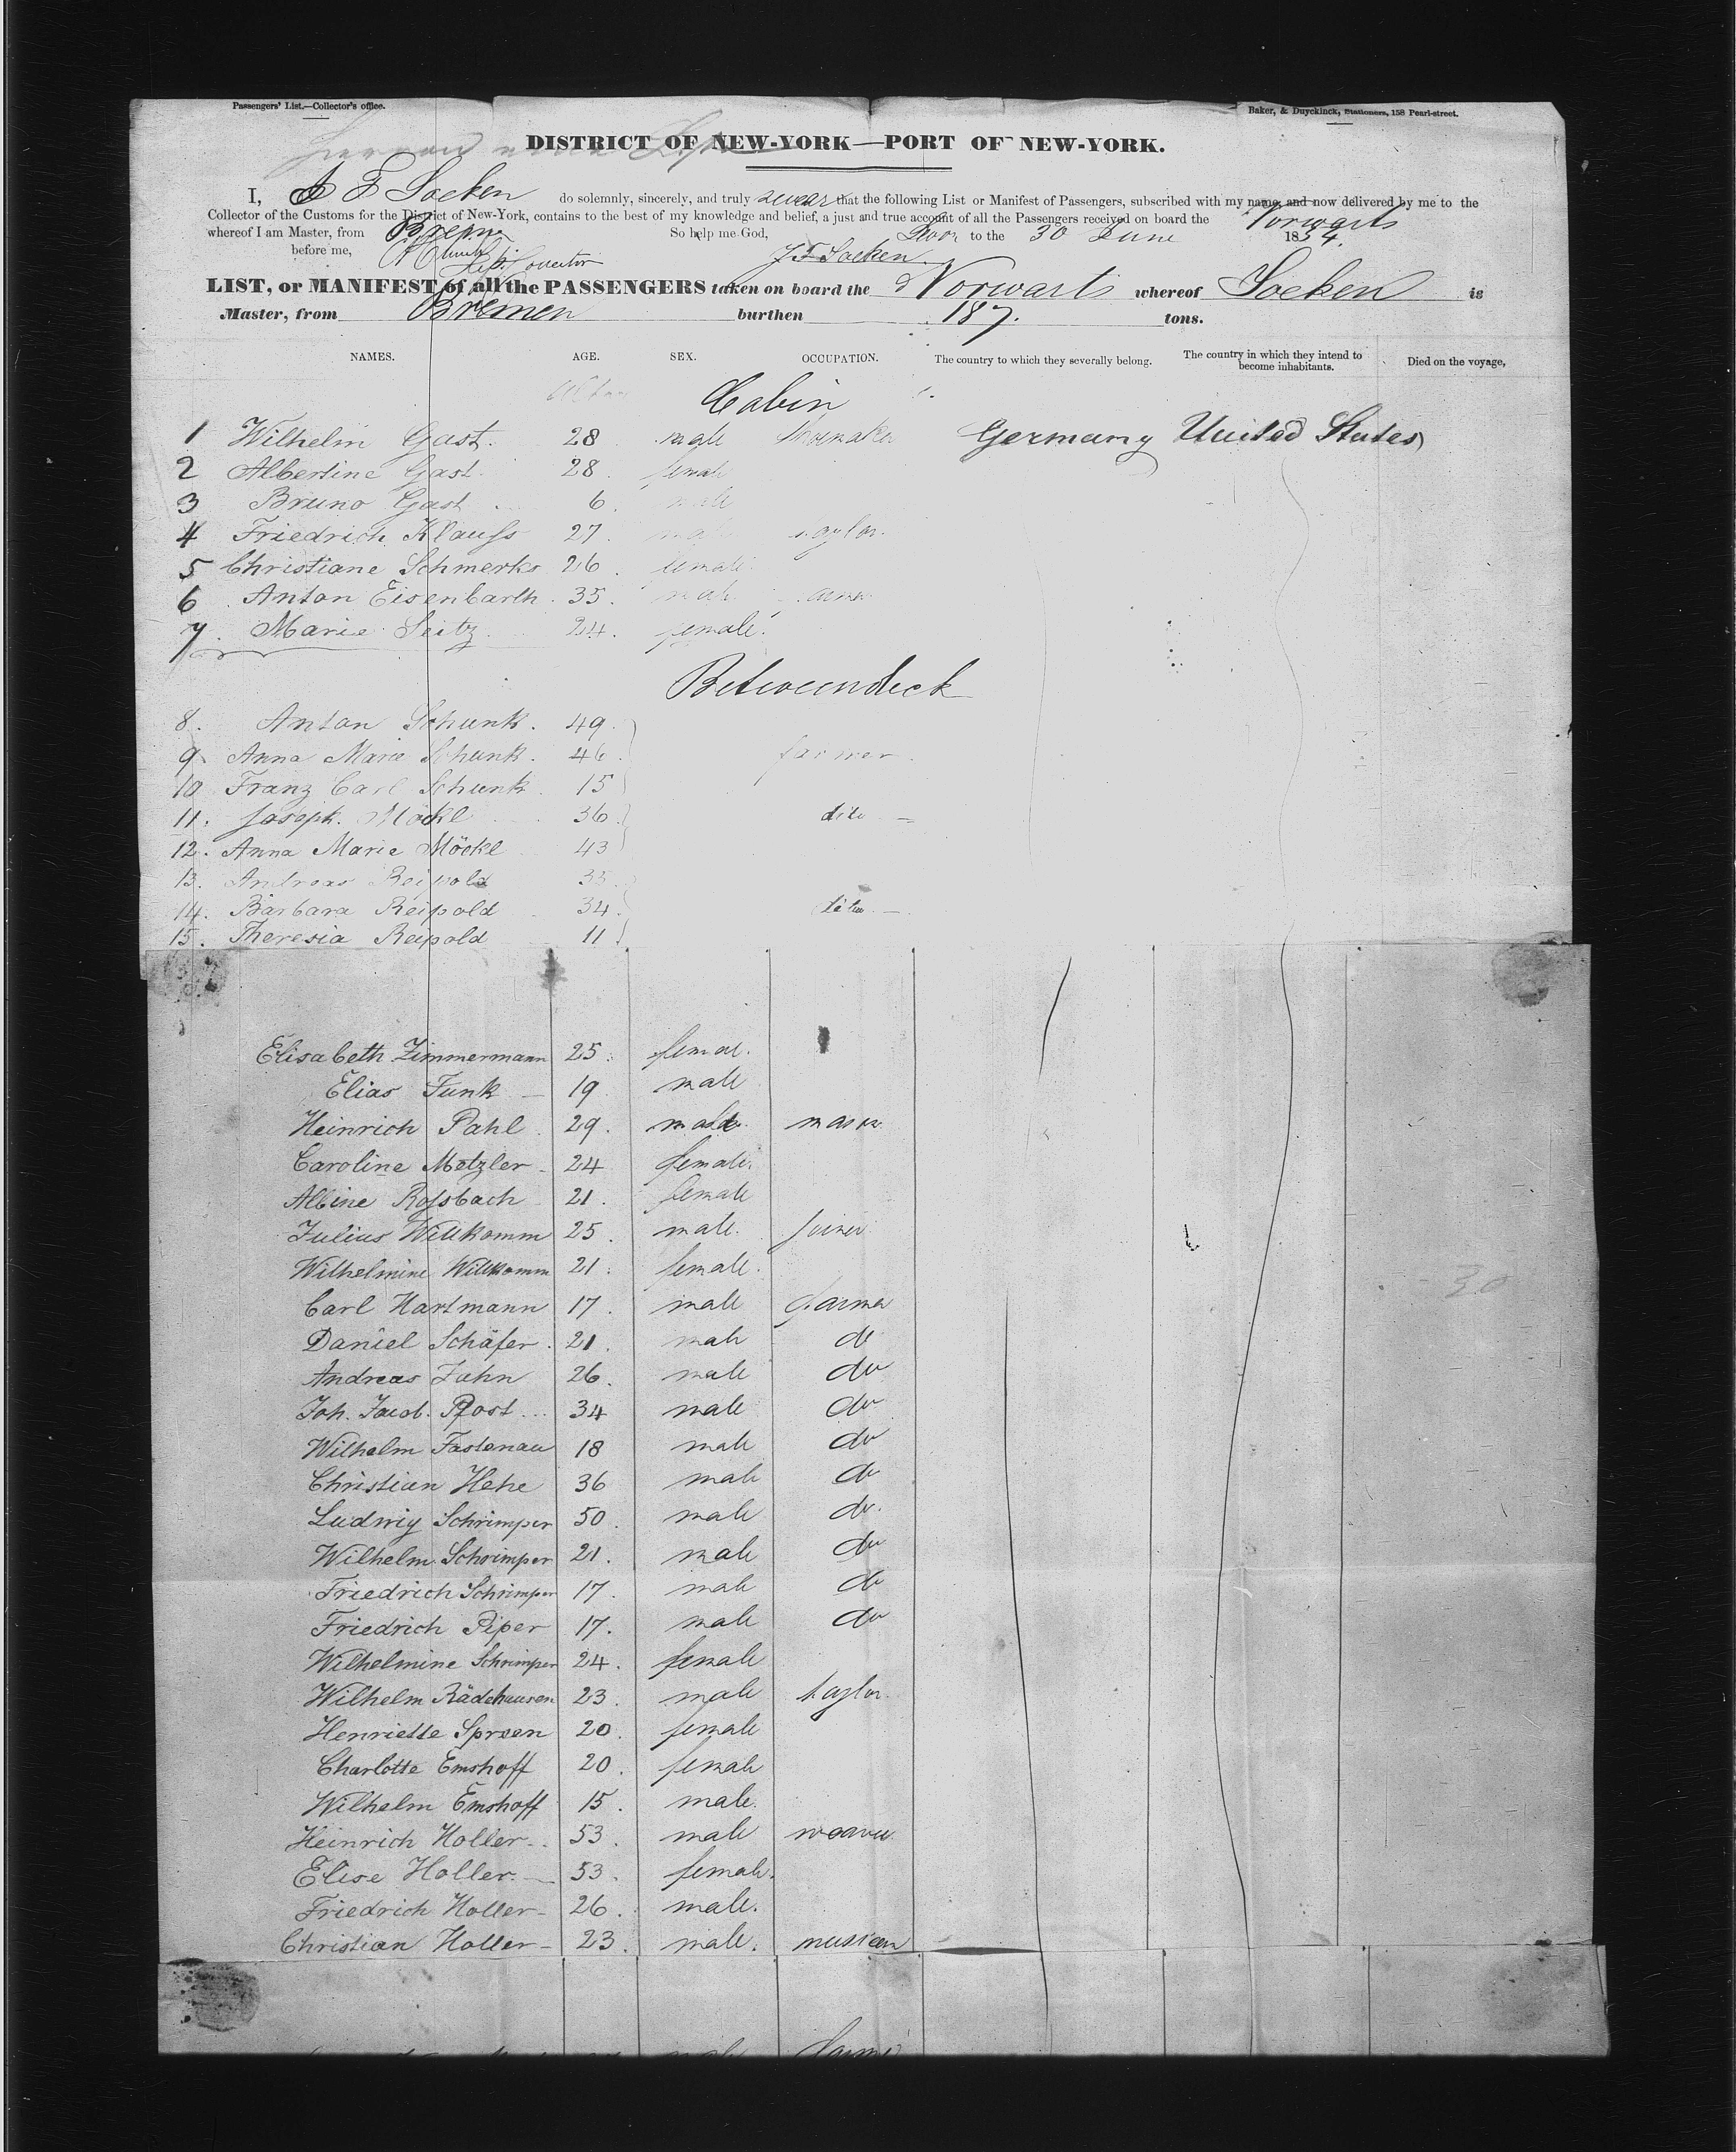 Passengers' List.—Collector's office.
Baker, & Duyckinck, Stationers, 158 Pearl-street.
DISTRICT OF NEW-YORK—PORT OF NEW-YORK.
I, J F Soeken do solemnly, sincerely, and truly swear that the following List or Manifest of Passengers, subscribed with my name, and now delivered by me to the
Collector of the Customs for the District of New-York, contains to the best of my knowledge and belief, a just and true account of all the Passengers received on board the Vorwarts
whereof I am Master, from Bremen So help me God, Sworn to the 30 June 1854.
before me, J F Soeken
LIST, or MANIFEST of all the PASSENGERS taken on board the Vorwarts whereof Soeken is
Master, from Bremen burthen 187. tons.
NAMES. AGE. SEX. OCCUPATION. The country to which they severally belong. The country in which they intend to become inhabitants. Died on the voyage,
Cabin
1 Wilhelm Gast. 28 male shoemaker Germany United States
2 Albertine Gast. 28 female
3 Bruno Gast 6. male
4 Friedrich Klauss 27. male taylor
5 Christiane Schmerks 26 female
6 Anton Eisenbarth. 35. male farmer
7. Marie Seitz 24. female.
Betweendeck
8. Anton Schunk. 49
9. Anna Marie Schunk. 46 farmer
10 Franz Carl Schunk 15
11. Joseph Möckl 36 dito —
12. Anna Marie Möckl 43
13. Andreas Reipold 35
14. Barbara Reipold 34 dito —
15. Theresia Reipold 11
Elisabeth Zimmermann 25. female.
Elias Funk — 19 male
Heinrich Pahl 29. male mason
Caroline Metzler 24 female.
Albine Rossbach 21. female
Julius Willkomm 25. male. joiner
Wilhelmine Willkomm 21. female.
Carl Hartmann 17. male farmer
Daniel Schäfer. 21. male do
Andreas Jahn 26. male do
Joh. Jacob. Rost 34 male do
Wilhelm Fastenau 18 male do
Christian Hehe 36 male do
Ludwig Schrimper 50. male do.
Wilhelm Schrimper 21. male do
Friedrich Schrimper 17. male do
Friedrich Piper 17. male do
Wilhelmine Schrimper 24. female
Wilhelm Rädehausen 23. male taylor
Henriette Spreen 20. female
Charlotte Emshoff 20. female
Wilhelm Emshoff 15. male.
Heinrich Holler 53. male weaver
Elise Holler — 53. female.
Friedrich Holler 26. male.
Christian Holler 23. male. musician
30